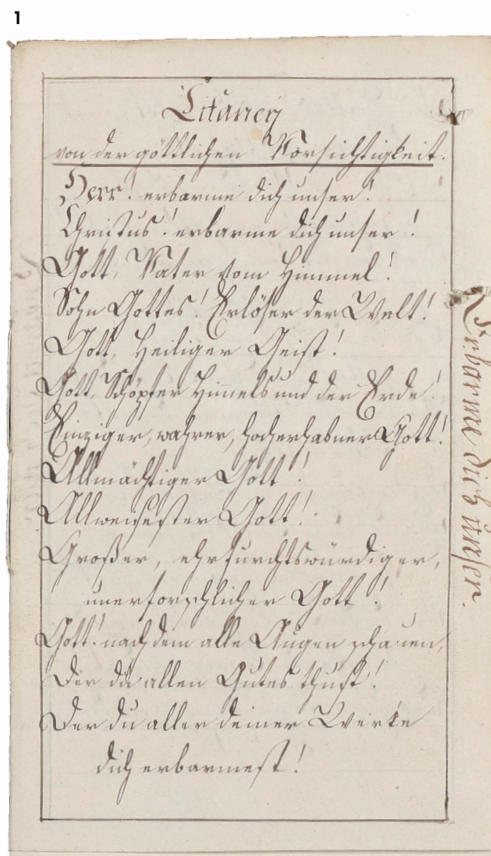 1
Litaney
von der göttlichen Vorsichtigkeit.
Herr! erbarme dich unser!
Christus! erbarme dich unser!
Gott, Vater vom Himmel!
Sohn Gottes! Erlöser der Welt!
Gott, heiliger Geist!
Gott, Schöpfer Himmels und der Erde!
Einziger, wahrer, hocherhabner Gott!
Allmächtiger Gott!
Allweisester Gott!
Großer, ehrfurchtswürdiger,
unerforschlicher Gott!
Gott! nach dem alle Augen schauen,
Der du allen Gutes thust!
Der du aller deiner Werke
dich erbarmest!
Erbarme dich unser.